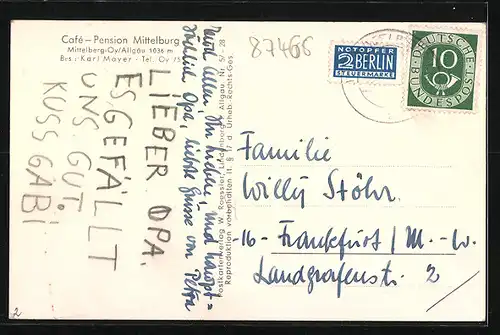 Café - Pension Mittelburg
Mittelberg-Oy/Allgäu 1036 m
Bes.: Karl Mayer · Tel. Oy 75
LIEBER OPA.
ES GEFÄLLT
UNS GUT.
KUSS GABI
Euch allen, Ihr Lieben, und haupt=
Opa, liebste Grüsse von Petra
Postkartenverlag W. Roessler, Lindenberg i. Allgäu Nr. 5/-28
Reproduktion vorbehalten lt. § 17 d. Urheb.-Rechts-Ges.
87466
NOTOPFER
2 BERLIN
STEUERMARKE
DEUTSCHE
BUNDESPOST
10
Familie
Willy Stöhr
-16- Frankfurt / M.-W.
Landgrafenstr. 2 /
2